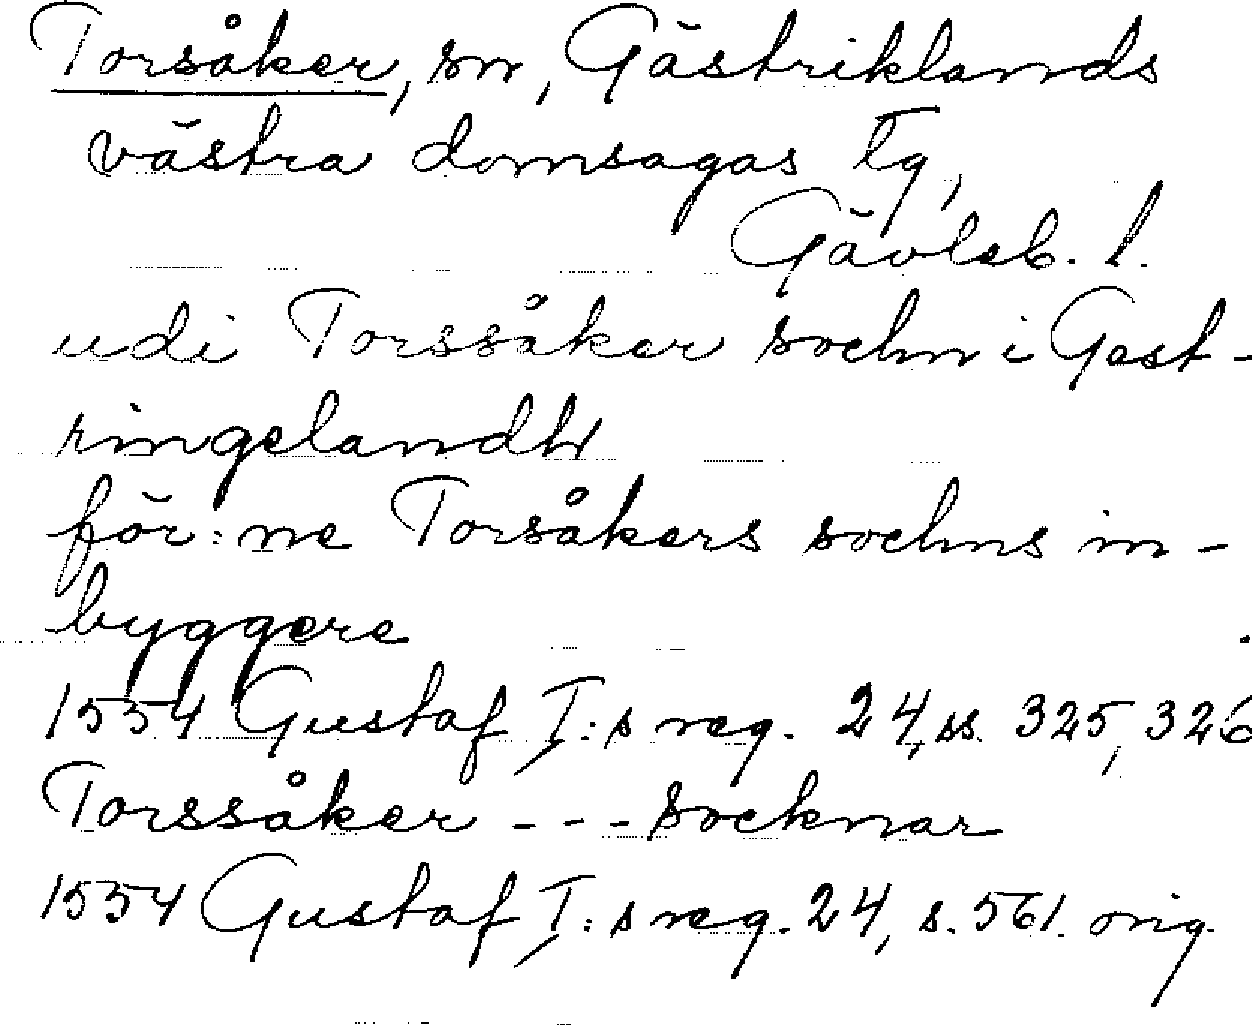 Torsåker, sn, Gästriklands
västra domsagas tg,
Gävleb. l.
udi Torssåker sochn i Gest-
ringelandh
för:ne Torsåkers sochns in-
byggere
1554 Gustaf I:s reg. 24, ss. 325, 326
Torssåker - - - socknar
1554 Gustaf I:s reg. 24, s. 561. orig.